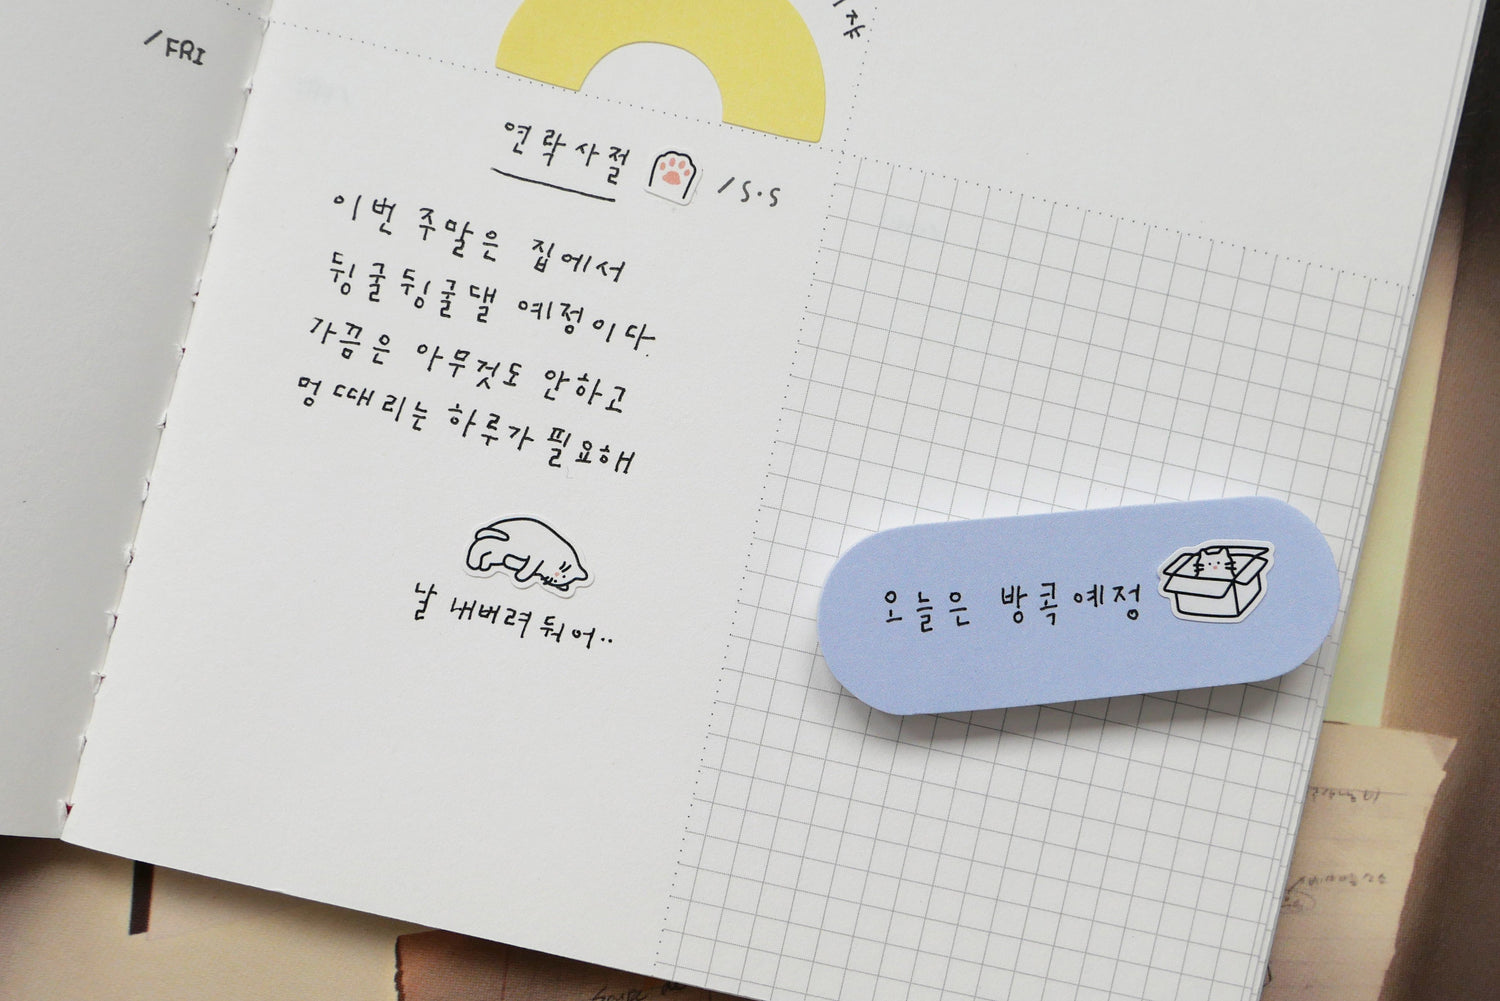 /FRI
연락사절 /S.S
이번 주말은 집에서
뒹굴뒹굴댈 예정이다.
가끔은 아무것도 안하고
멍 때리는 하루가 필요해
날 내버려 둬어..
오늘은 방콕예정